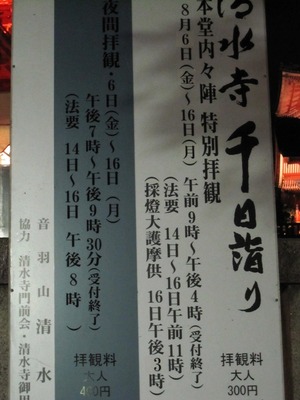 清水寺 千日詣り
本堂内々陣 特別拝観
8月6日(金)〜16日(月) 午前9時〜午後4時(受付終了)
(法要 14日〜16日午前11時)
(採燈大護摩供 16日午後3時)
拝観料
大人
300円
夜間拝観・6日(金)〜16日(月)
午後7時〜午後9時30分(受付終了)
(法要 14日〜16日 午後8時)
拝観料
大人
400円
音羽山 清水
協力 清水寺門前会・清水寺御用